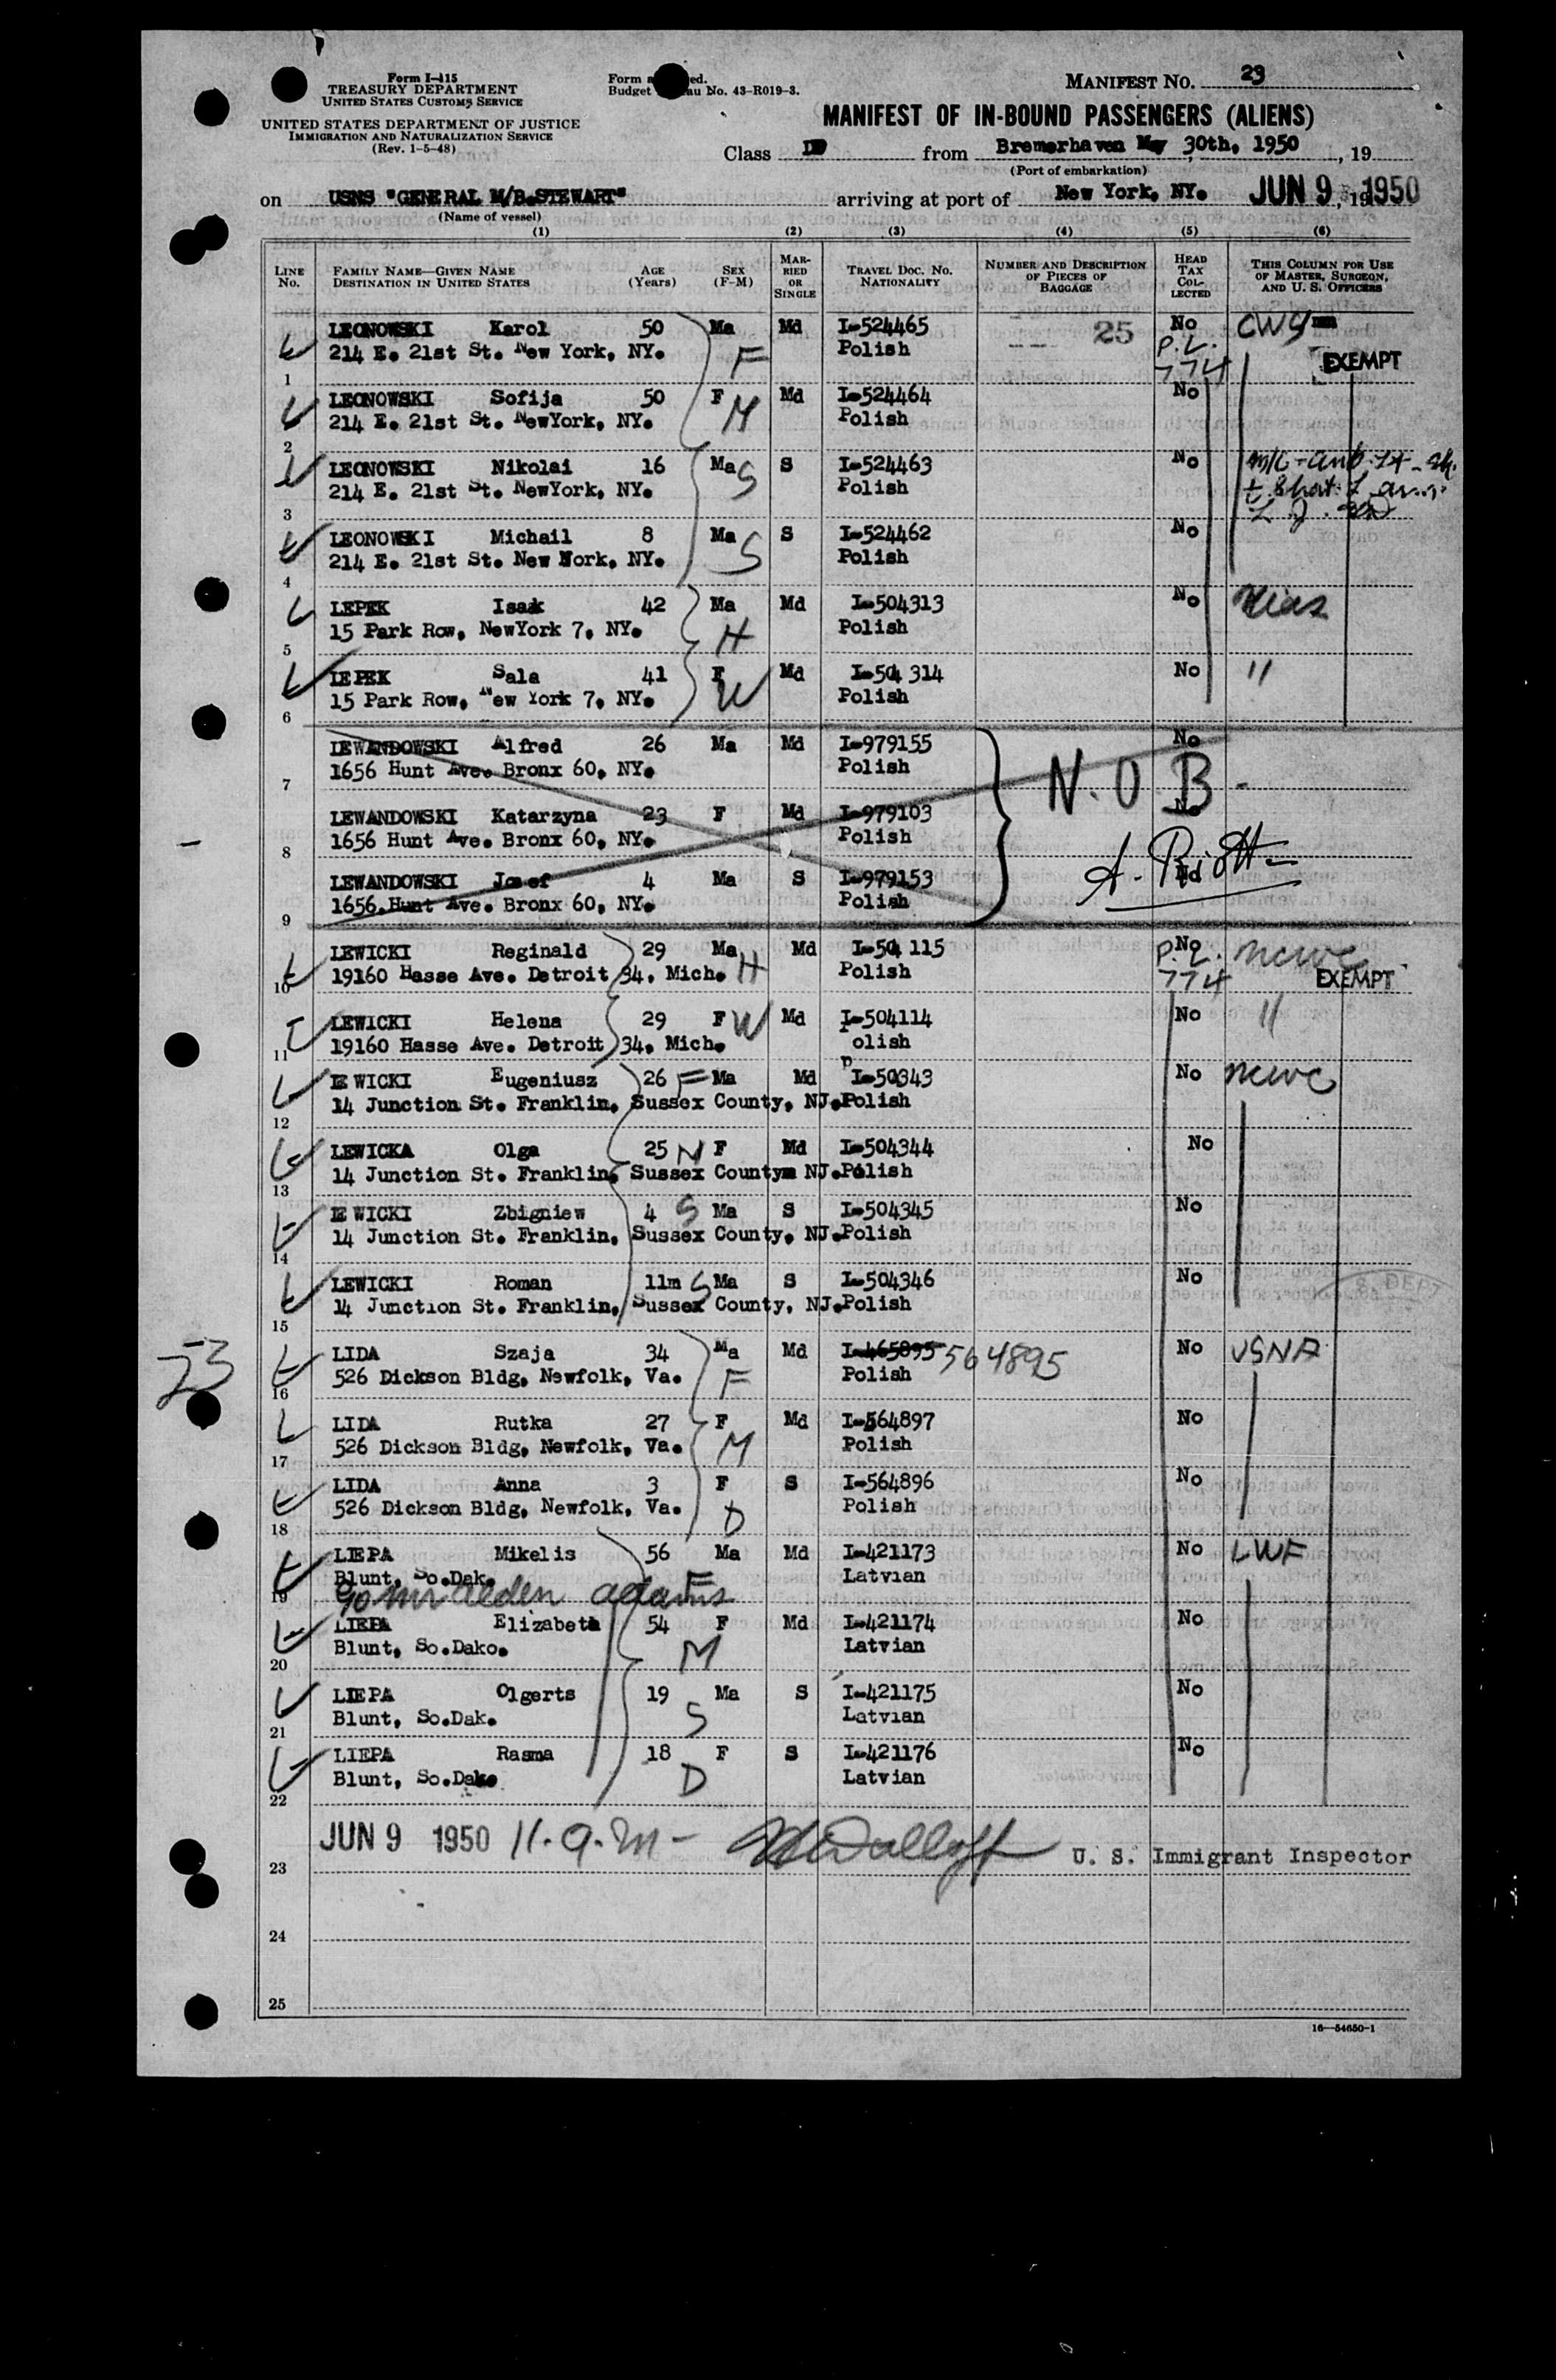 Form I-415
TREASURY DEPARTMENT
UNITED STATES CUSTOMS SERVICE
UNITED STATES DEPARTMENT OF JUSTICE
IMMIGRATION AND NATURALIZATION SERVICE
(Rev. 1-5-48)
Form a ed.
Budget au No. 43-R019-3.
MANIFEST NO. 23
MANIFEST OF IN-BOUND PASSENGERS (ALIENS)
Class from Bremerhaven May 30th, 1950, 19
(Port of embarkation)
on USNS "GENERAL M/B.STEWART" arriving at port of New York, NY. JUN 9 1950, 19
(Name of vessel)
(1) (2) (3) (4) (5) (6)
LINE NO. FAMILY NAME—GIVEN NAME DESTINATION IN UNITED STATES AGE (Years) SEX (F-M) MARRIED OR SINGLE TRAVEL DOC. NO. NATIONALITY NUMBER AND DESCRIPTION OF PIECES OF BAGGAGE HEAD TAX COLLECTED THIS COLUMN FOR USE OF MASTER, SURGEON, AND U. S. OFFICERS
LEONOWSKI Karol 50 Ma Md I-524465 25 No CWS
214 E. 21st St. New York, NY. F Polish P.L. 774 EXEMPT
1
LEONOWSKI Sofija 50 F Md I-524464 No
214 E. 21st St. NewYork, NY. M Polish
2
LEONOWSKI Nikolai 16 Ma S S I-524463 No
214 E. 21st St. NewYork, NY. Polish
3
LEONOWSKI Michail 8 Ma S I-524462 No
214 E. 21st St. New Nork, NY. S Polish
4
LEPEK Isak 42 Ma Md I-504313 No Hias
15 Park Row, NewYork 7, NY. H Polish
5
LEPEK Sala 41 F Md I-504 314 No "
15 Park Row, New York 7, NY. W Polish
6
LEWANDOWSKI Alfred 26 Ma Md I-979155 No
1656 Hunt Ave. Bronx 60, NY. Polish N.O.B-
7
LEWANDOWSKI Katarzyna 23 F Md I-979103 No
1656 Hunt Ave. Bronx 60, NY. Polish
8
LEWANDOWSKI Josef 4 Ma S I-979153 No
1656 Hunt Ave. Bronx 60, NY. Polish
9
LEWICKI Reginald 29 Ma Md I-504 115 No ncwc
19160 Hasse Ave. Detroit 34. Mich. H Polish P.L. 774 EXEMPT
10
LEWICKI Helena 29 F W Md I-504114 No "
19160 Hasse Ave. Detroit 34. Mich. Polish
11
LEWICKI Eugeniusz 26 F Ma Md I-50343 No ncwc
14 Junction St. Franklin, Sussex County, NJ. Polish
12
LEWICKA Olga 25 M F Md I-504344 No
14 Junction St. Franklin, Sussex County NJ. Polish
13
LEWICKI Zbigniew 4 S Ma S I-504345 No
14 Junction St. Franklin, Sussex County, NJ. Polish
14
LEWICKI Roman 11m S Ma S I-504346 No
14 Junction St. Franklin, Sussex County, NJ. Polish
15
23
LIDA Szaja 34 Ma Md I-465895 564895 No USNA
526 Dickson Bldg, Newfolk, Va. F Polish
16
LIDA Rutka 27 F Md I-564897 No
526 Dickson Bldg, Newfolk, Va. M Polish
17
LIDA Anna 3 F S I-564896 No
526 Dickson Bldg, Newfolk, Va. D Polish
18
LIEPA Mikelis 56 Ma Md I-421173 No LWF
Blunt, So.Dak. F Latvian
19 c/o Mr Alden Adams
LIEPA Elizabeth 54 F Md I-421174 No
Blunt, So.Dako. M Latvian
20
LIEPA Olgerts 19 Ma S I-421175 No
Blunt, So.Dak. S Latvian
21
LIEPA Rasma 18 F S I-421176 No
Blunt, So.Dak. D Latvian
22
JUN 9 1950 11.a.m- U. S. Immigrant Inspector
23
24
25
16—54650-1